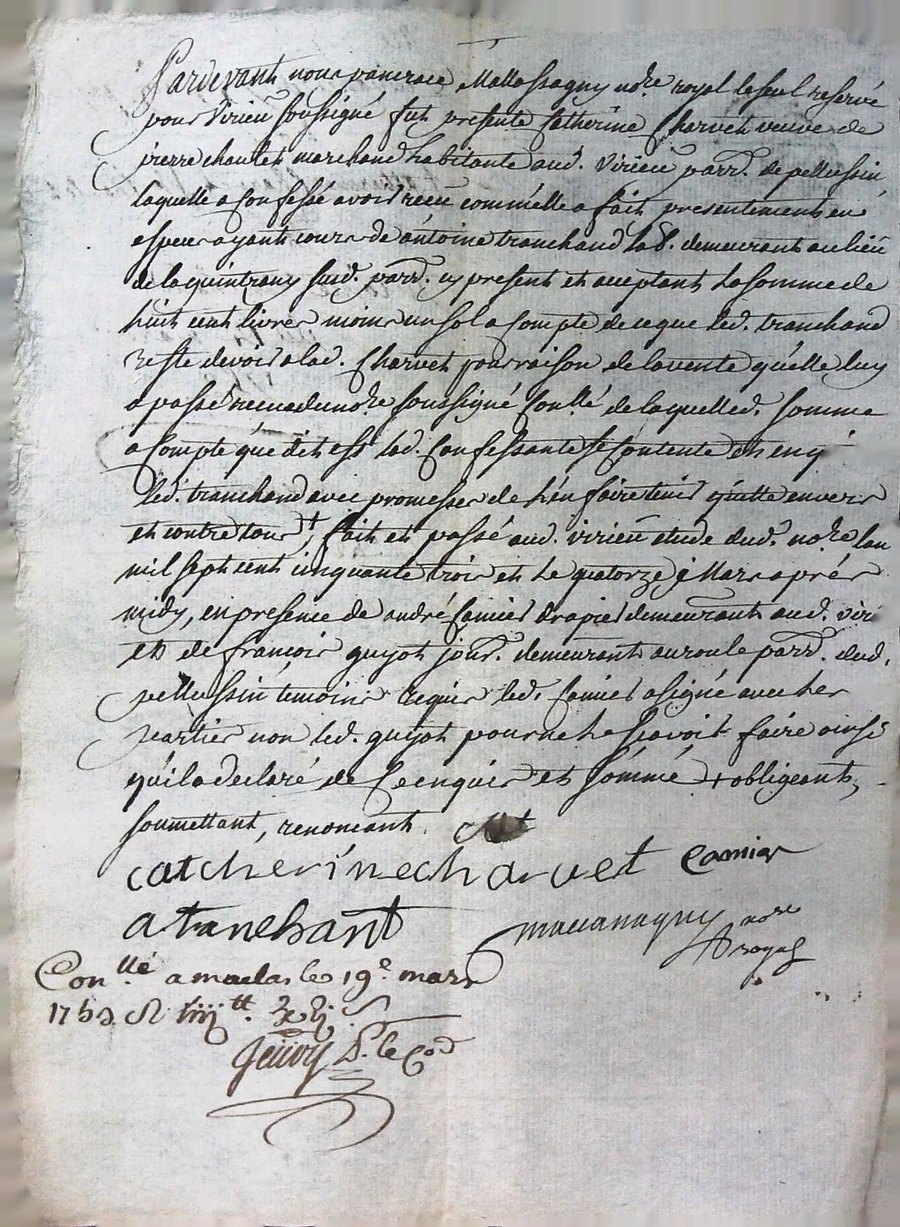 Pardevant nous pancrace Mallassagny no.re royal le seul reservé
pour Virieu soussigné fut presente Catherine Charvet veuve de
pierre chaulet marchand habitante aud. Virieu parr. de pellussin
laquelle a confessé avoir reçeu comm'elle a fait presentement en
especes ayant cours de antoine tranchand lab. demeurant au lieu
de la quintrany susd. parr. cy present et acceptant la somme de
huit cent livres moins un sol a compte de ce que led. tranchand
reste devoir a lad. Charvet pour raison de la vente qu'elle luy
a passé receu du no.re soussigné Con.llé de laquelle d. somme
a compte que dit est lad. Confessante se contente et en q.
led. tranchand avec promesse de l'en faire tenir quitte envers
et contre tous †, fait et passé aud. virieu etude dud. no.re l'an
mil sept cent cinquante trois et le quatorze Mars aprés
midy, en presence de andré Camier drapier demeurant aud. viri
et de françois guyot jour. demeurant au parr. dud.
pellussin temoins requis led. Camier a signé avec les
parties non led. guyot pour ne le sçavoir faire ainsi
qu'il a declaré de ce enquis et sommé † obligeant,
soumettant, renonçant.
catcherinecharvet Camier
atranchant macanagny no.re royal
Con.llé a maclas le 19.e mars
1753. R.